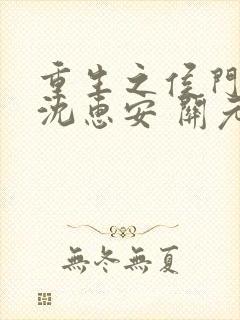 重生之侯門
沈惠安 開元
無冬無夏